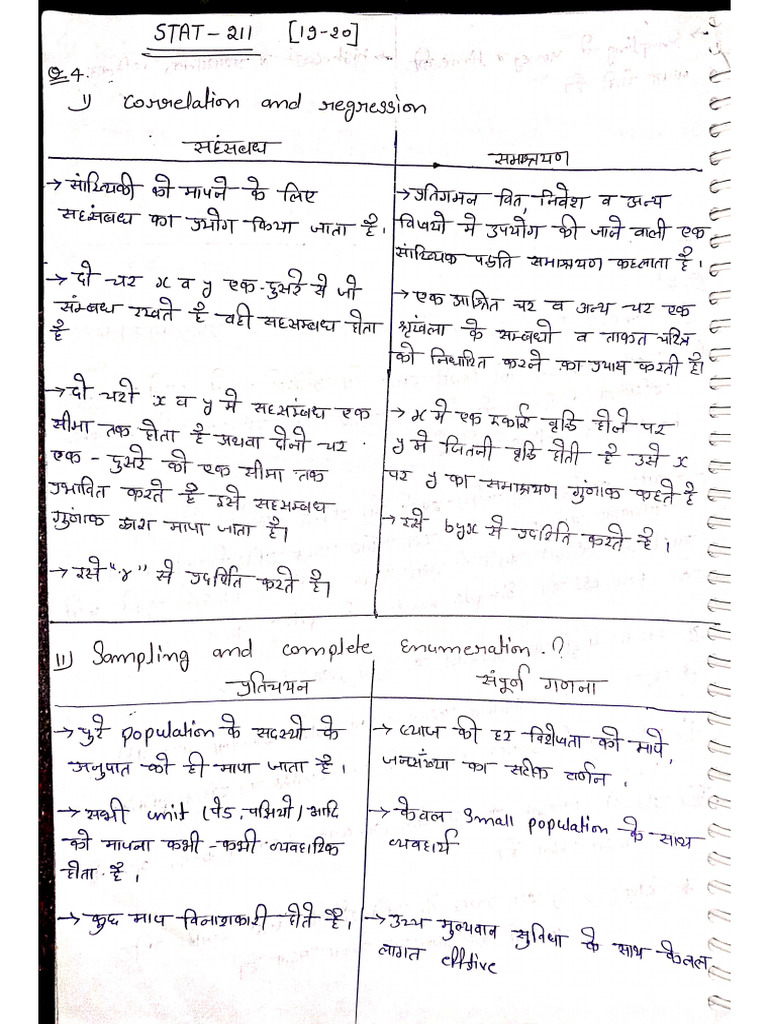 STAT-211 [19-20]
Q.4.
1) Correlation and regression
सहसंबध
→ सांख्यिकी को मापने के लिए
सहसंबध का प्रयोग किया जाता है।
→ दो चर x व y एक-दुसरे से जो
संम्बध रखते है वही सहसम्बध होता
है
→ दो चरो x व y मे सहसंम्बध एक
सीमा तक होता है अथवा दोनो चर
एक - दुसरे को एक सीमा तक
प्रभावित करते है इसे सहसम्बध
गुणांक द्वारा मापा जाता है।
→ इसे "r" से प्रदर्शित करते है।
समाश्रयण
→ प्रतिगमन वित, निवेश व अन्य
विषयो मे उपयोग की जाने वाली एक
सांख्यिक पद्धति समाश्रयण कहलाता है।
→ एक आश्रित चर व अन्य चर एक
श्रृंखला के सम्बधो व ताकत चरित्र
को निर्धारित करने का प्रयास करती है।
→ x मे एक इकाई वृद्धि होने पर
y मे जितनी वृद्धि होती है उसे x
पर y का समाश्रयण गुंणाक कहते है
→ इसे byx से प्रदर्शित करते है।
11) Sampling and complete Enumeration.?
प्रतिचयन
→ पुरे population के सदस्यो के
अनुपात को ही मापा जाता है।
→ सभी unit (पेड, पत्तियो) आदि
को मापना कभी-कभी व्यवहारिक
होता है।
→ कुछ माप विनाशकारी होते है।
संपूर्ण गणना
→ ब्याज की हर विशेषता को मापे,
जनसंख्या का सटीक वर्णन.
→ केवल small population के साथ
व्यवहार्य
→ उच्च मुल्यवान सुविधा के साथ केवल
लागत effctive